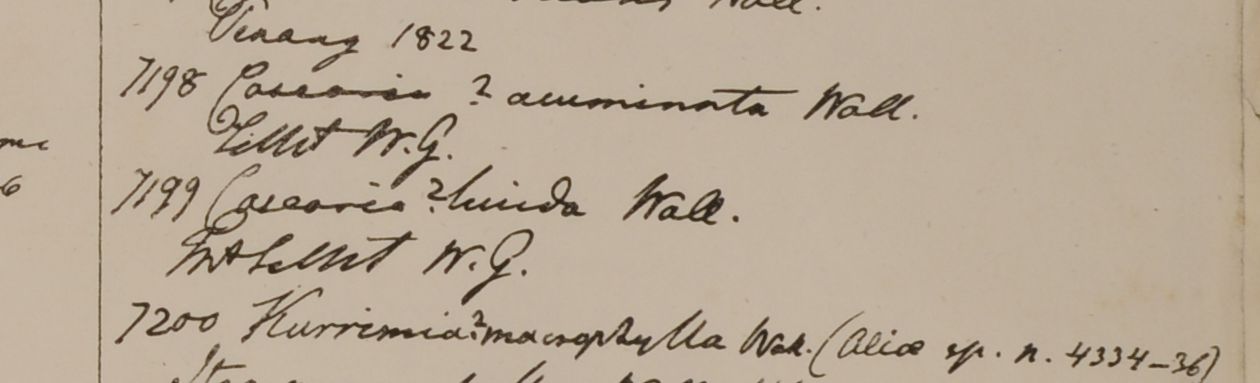 Wall.
Penang 1822
7198 Casearia ? acuminata Wall.
Sillet W.G.
7199 Casearia ? lucida Wall.
Mt Sillet W.G.
7200 Kurrimia? macrophylla Wall. (Aliae sp. n. 4334-36)